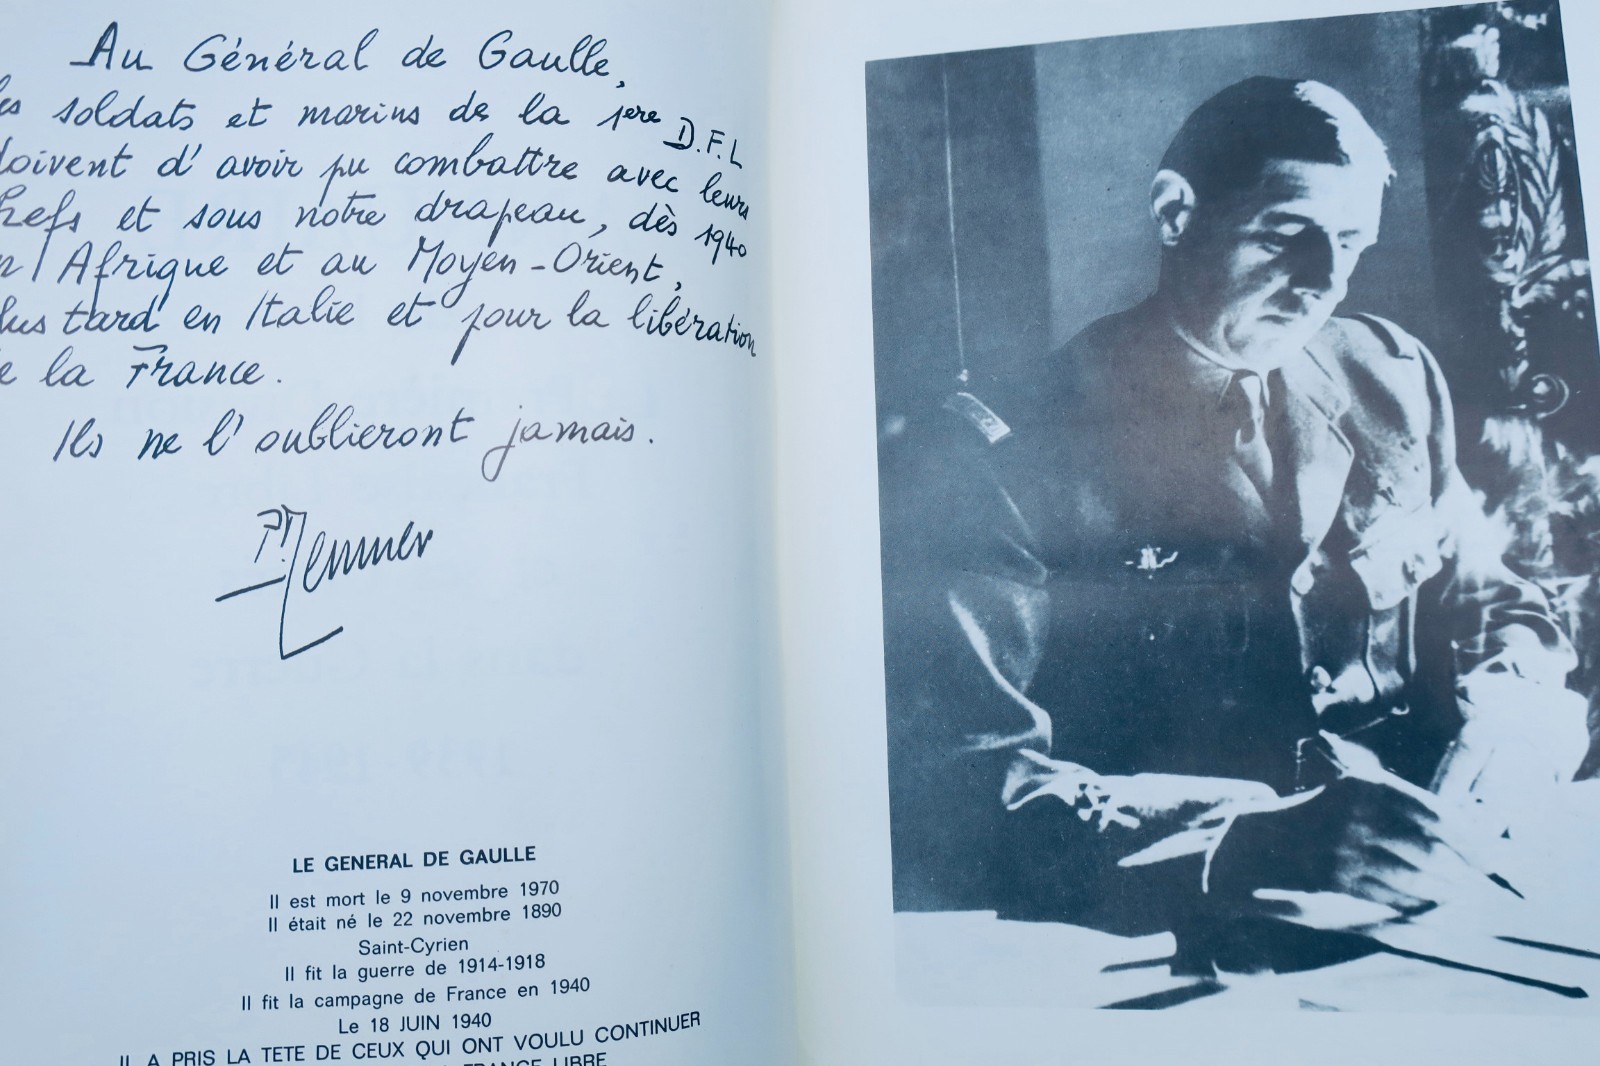 Au Général de Gaulle,
les soldats et marins de la 1ere D.F.L
doivent d'avoir pu combattre avec leurs
chefs et sous notre drapeau, dès 1940
en Afrique et au Moyen-Orient,
plus tard en Italie et pour la libération
de la France.
Ils ne l'oublieront jamais.
LE GENERAL DE GAULLE
Il est mort le 9 novembre 1970
Il était né le 22 novembre 1890
Saint-Cyrien
Il fit la guerre de 1914-1918
Il fit la campagne de France en 1940
Le 18 JUIN 1940
IL A PRIS LA TETE DE CEUX QUI ONT VOULU CONTINUER
FRANCE LIBRE